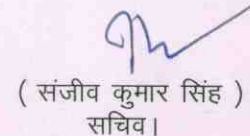 ( संजीव कुमार सिंह )
सचिव।